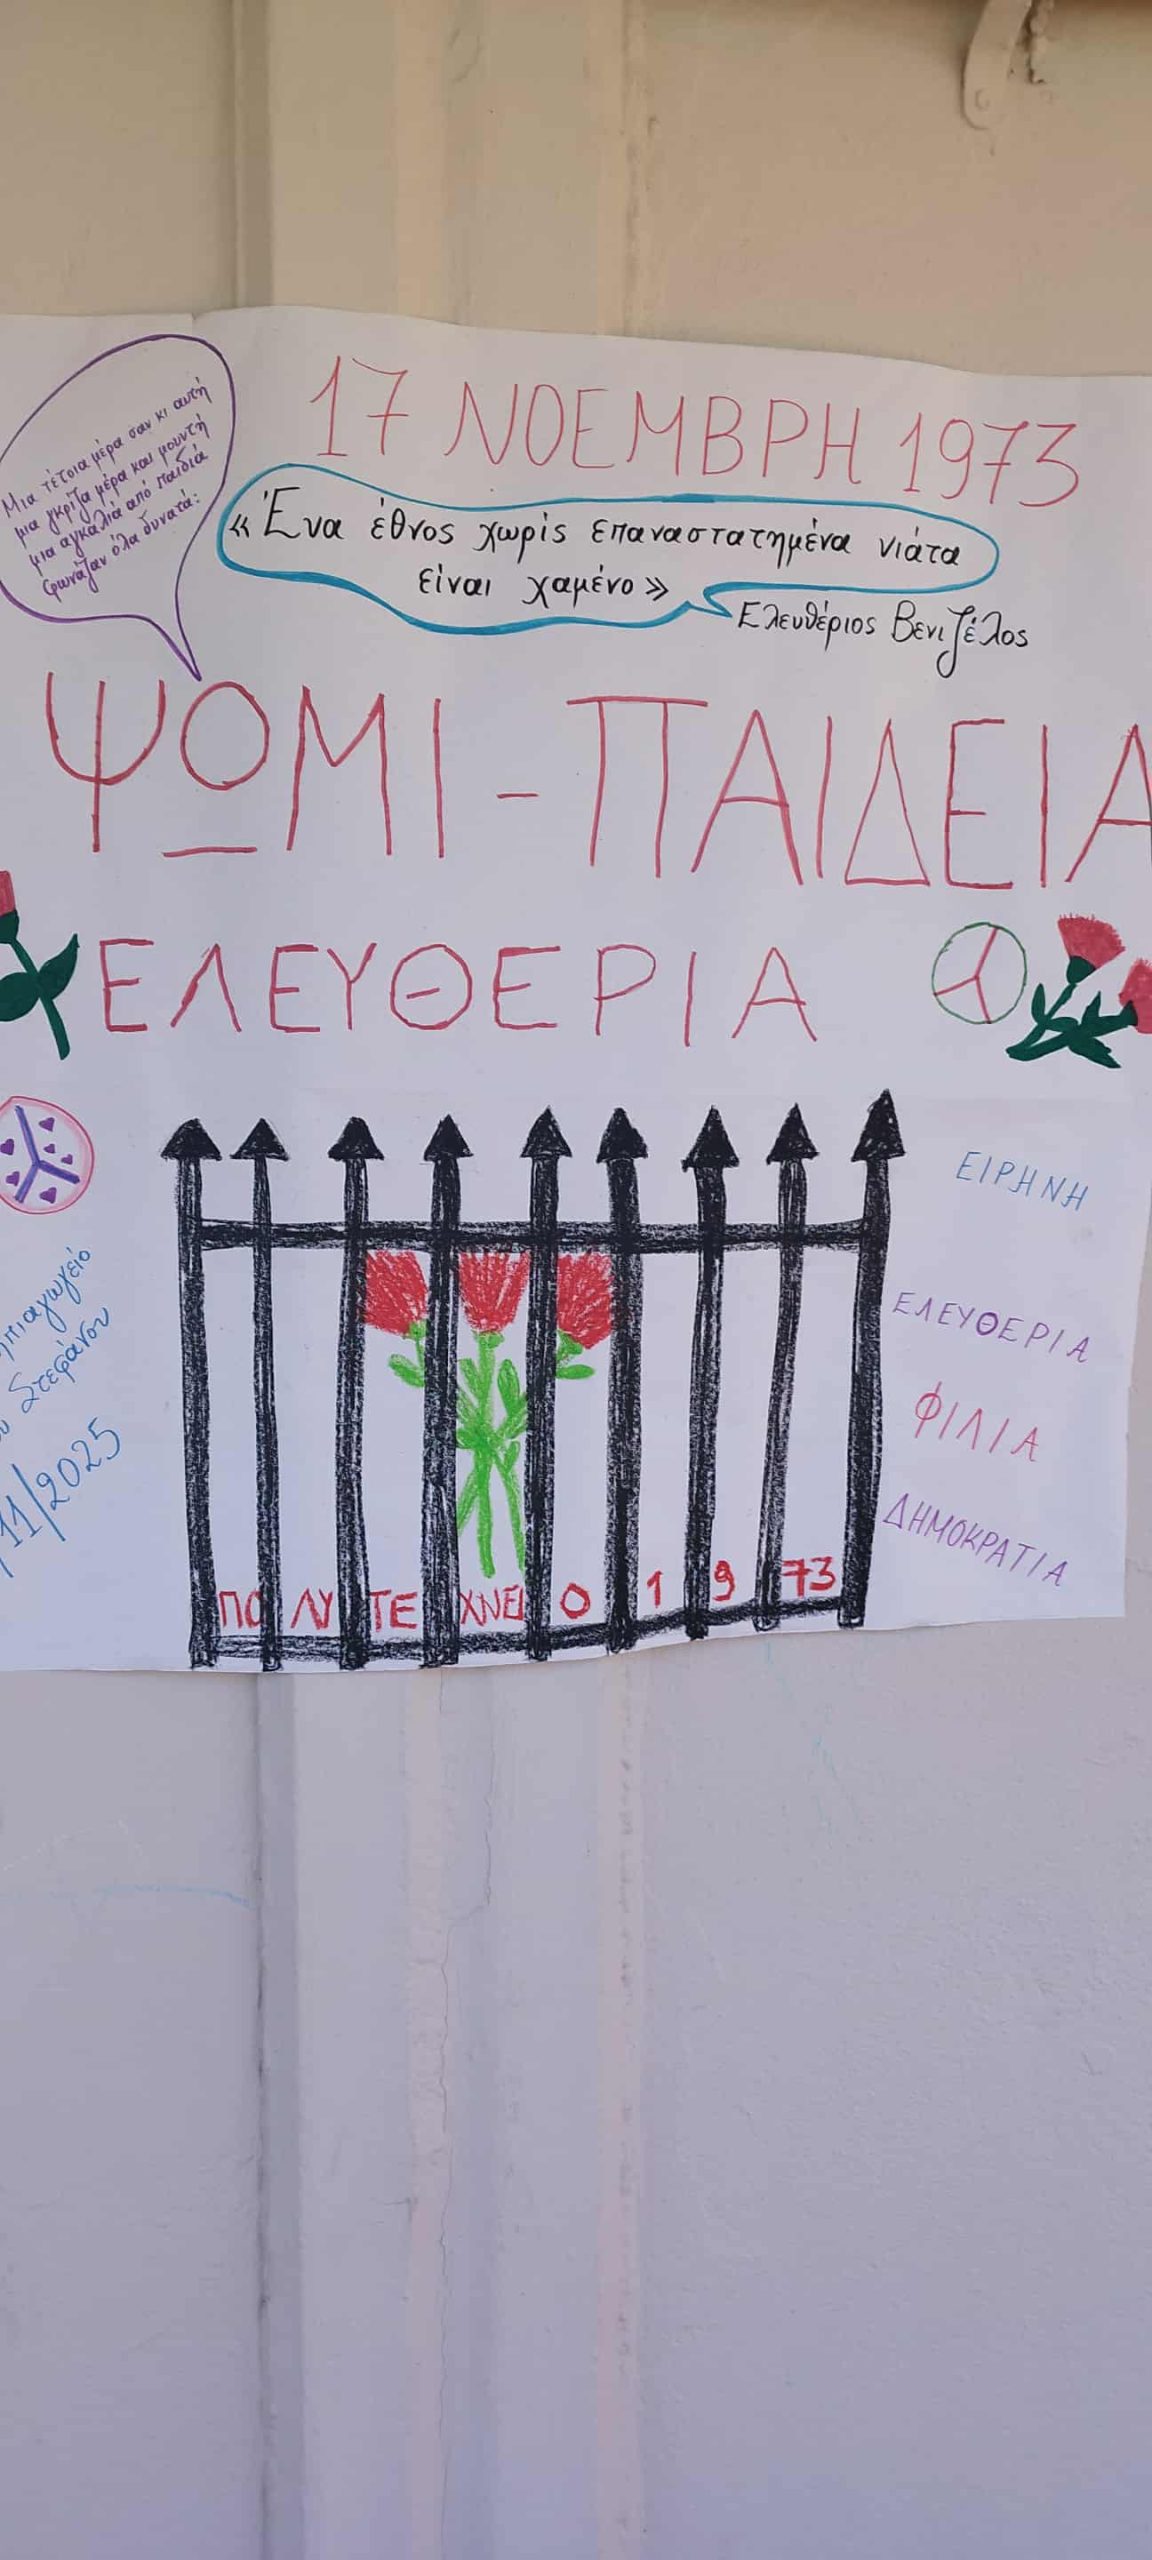 17 ΝΟΕΜΒΡΗ 1973
Μια τέτοια μέρα σαν κι αυτή
μια γκρίζα μέρα και μουντή
μια αγκαλιά από παιδιά
φωνάζαν όλα δυνατά:
«Ένα έθνος χωρίς επαναστατημένα νιάτα
είναι χαμένο»
Ελευθέριος Βενιζέλος
ΨΩΜΙ - ΠΑΙΔΕΙΑ
ΕΛΕΥΘΕΡΙΑ
ΕΙΡΗΝΗ
ΕΛΕΥΘΕΡΙΑ
ΦΙΛΙΑ
ΔΗΜΟΚΡΑΤΙΑ
Στεφάνου
11/2025
ΠΟΛΥΤΕΧΝΕΙΟ 1973